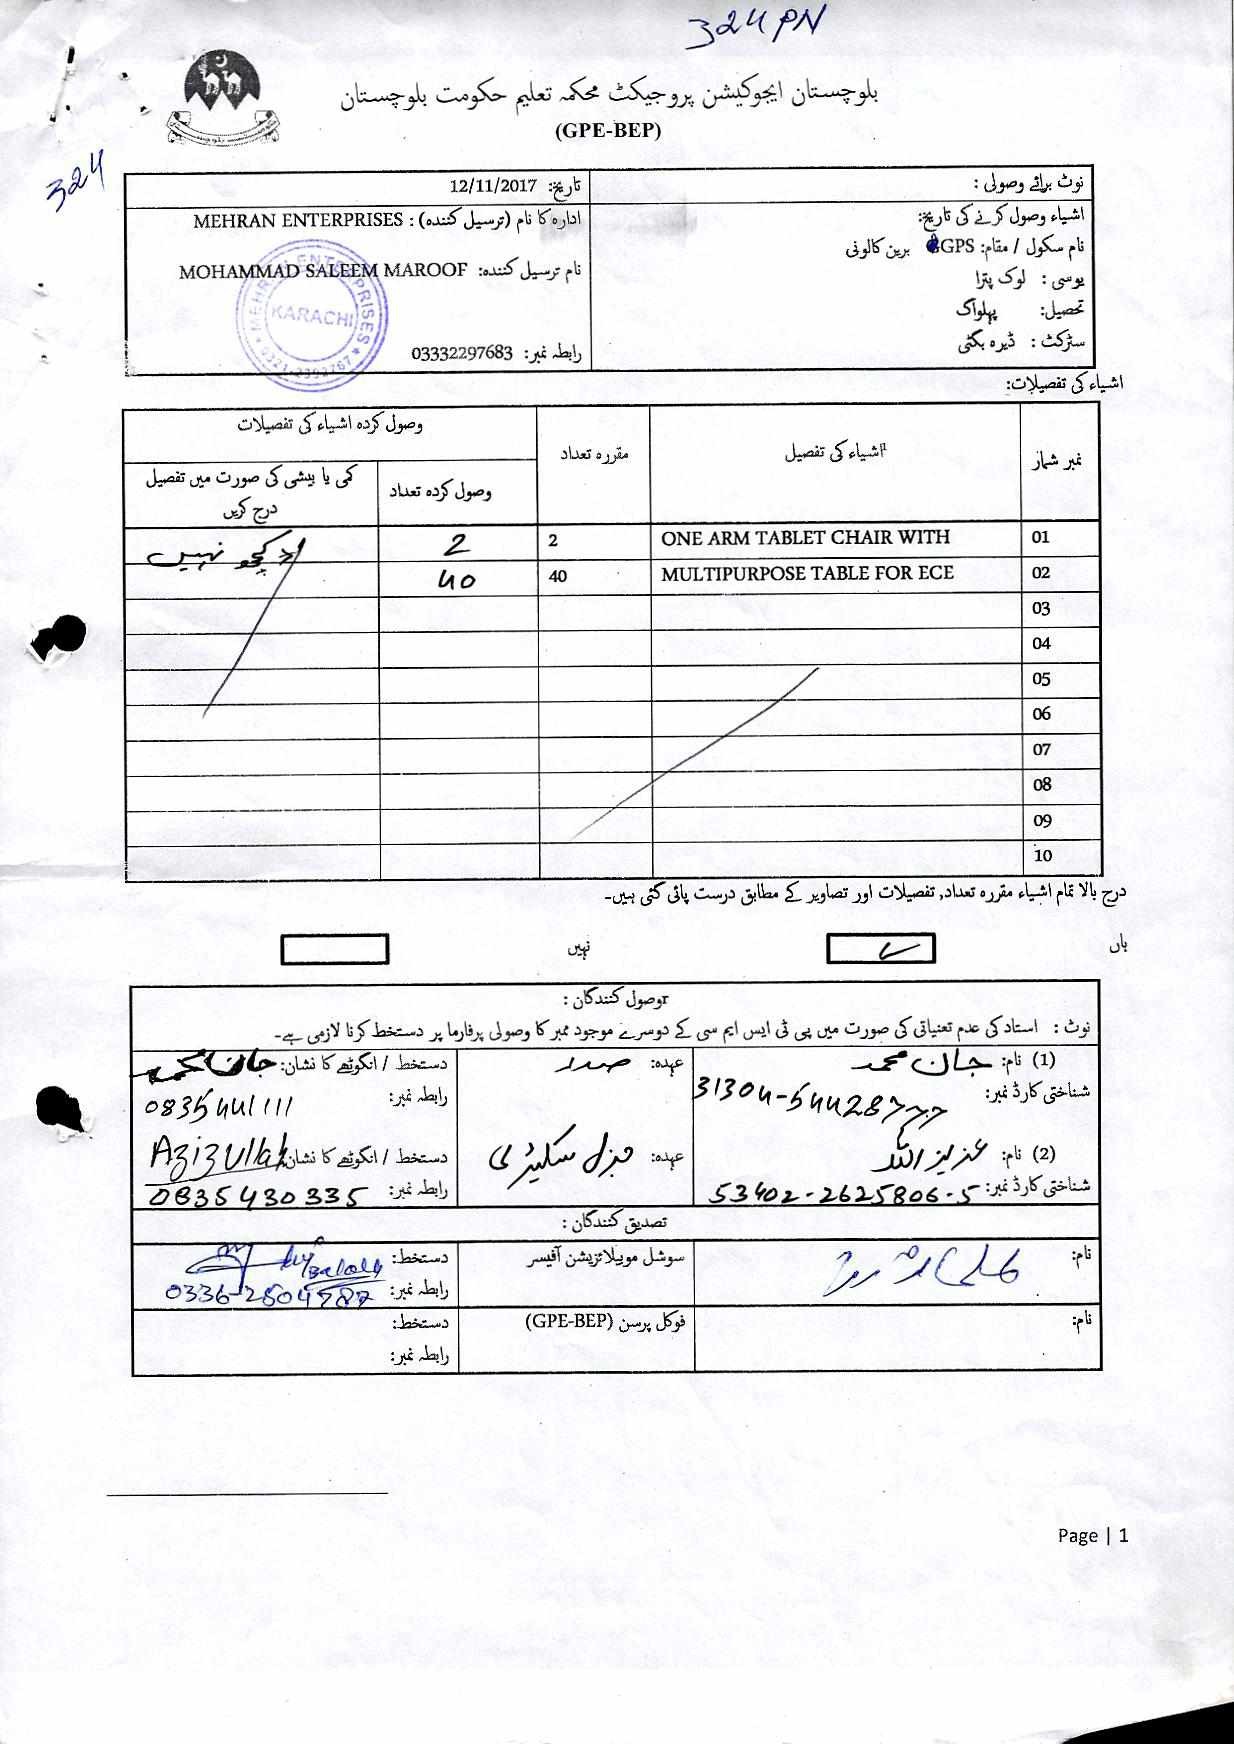 324 PN
بلوچستان ایجوکیشن پروجیکٹ محکمہ تعلیم حکومت بلوچستان
(GPE-BEP)
324
نوٹ برائے وصولی :
تاریخ: 12/11/2017
اشیاء وصول کرنے کی تاریخ:
ادارہ کا نام (ترسیل کنندہ) : MEHRAN ENTERPRISES
نام سکول / مقام: GGPS برین کالونی
نام ترسیل کنندہ: MOHAMMAD SALEEM MAROOF
یوسی : لوک پترا
تحصیل: پہلواگ
سڑکٹ : ڈیرہ بگٹی
رابطہ نمبر: 03332297683
MEHRAN ENTERPRISES
KARACHI
اشیاء کی تفصیلات:
نمبر شمار
اشیاء کی تفصیل
مقررہ تعداد
وصول کردہ اشیاء کی تفصیلات
وصول کردہ تعداد
کمی یا بیشی کی صورت میں تفصیل
درج کریں
01 ONE ARM TABLET CHAIR WITH 2 2 کچھ نہیں
02 MULTIPURPOSE TABLE FOR ECE 40 40
03
04
05
06
07
08
09
10
درج بالا تمام اشیاء مقررہ تعداد, تفصیلات اور تصاویر کے مطابق درست پائی گئی ہیں۔
ہاں
نہیں
وصول کنندگان :
نوٹ : استاد کی عدم تعنیاتی کی صورت میں پی ٹی ایس ایم سی کے دوسرے موجود ممبر کا وصولی پرفارما پر دستخط کرنا لازمی ہے۔
(1) نام: جان محمد عہدہ: صدر دستخط / انگوٹھے کا نشان: جان محمد
شناختی کارڈ نمبر: رابطہ نمبر: 0835441111
(2) نام: عزیز اللہ عہدہ: جنرل سکیٹری دستخط / انگوٹھے کا نشان: Azizullah
شناختی کارڈ نمبر: 53402-2625806-5 رابطہ نمبر: 0835430335
تصدیق کنندگان :
نام: سوشل موبیلائزیشن آفیسر دستخط:
رابطہ نمبر:
نام: فوکل پرسن (GPE-BEP) دستخط:
رابطہ نمبر:
Page | 1